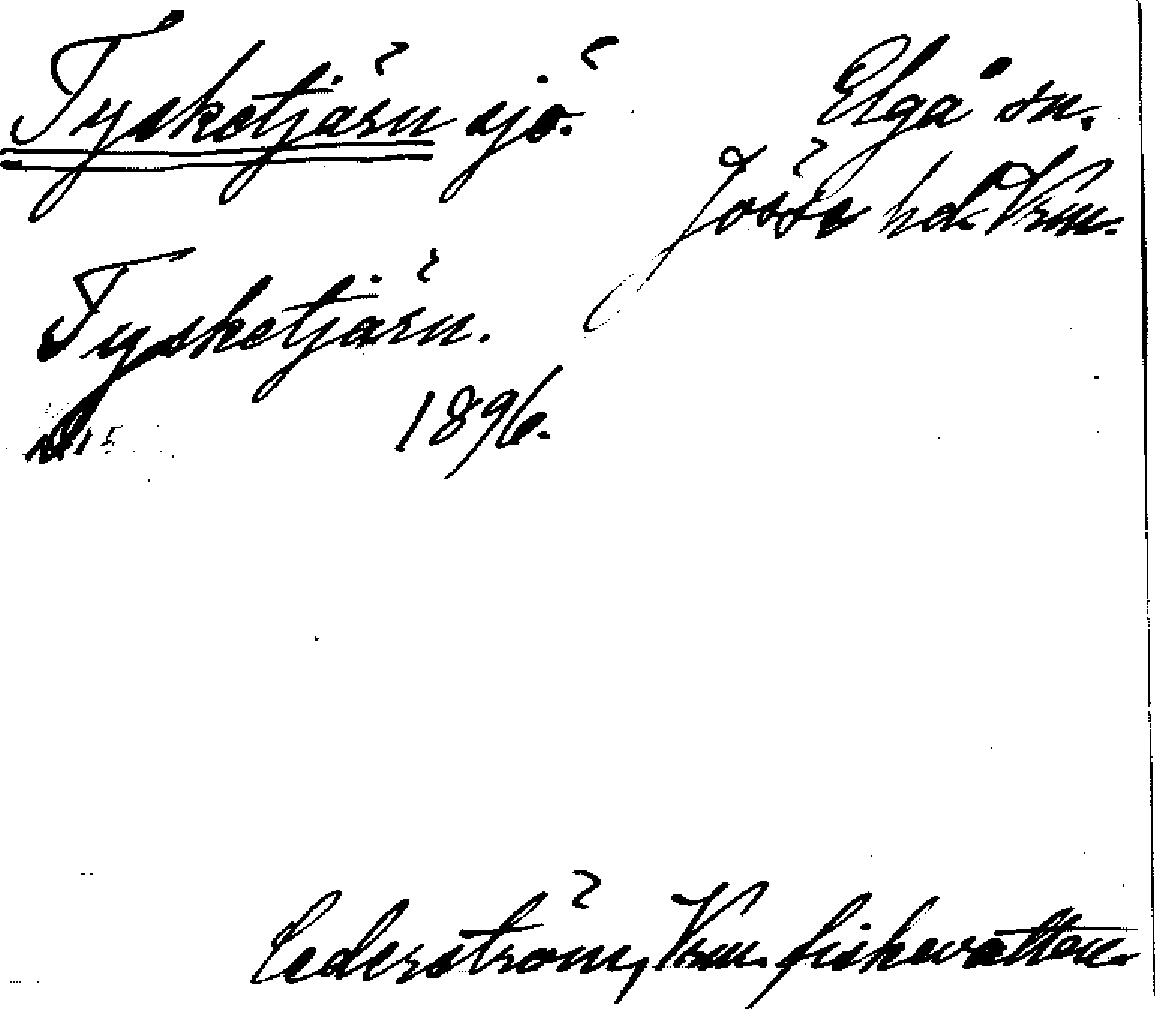 Tysketjärn sjö.
Elgå sn.
Jösse hd. Vrm.
Tysketjärn.
1896.
Cederström, Vrm. fiskevatten.